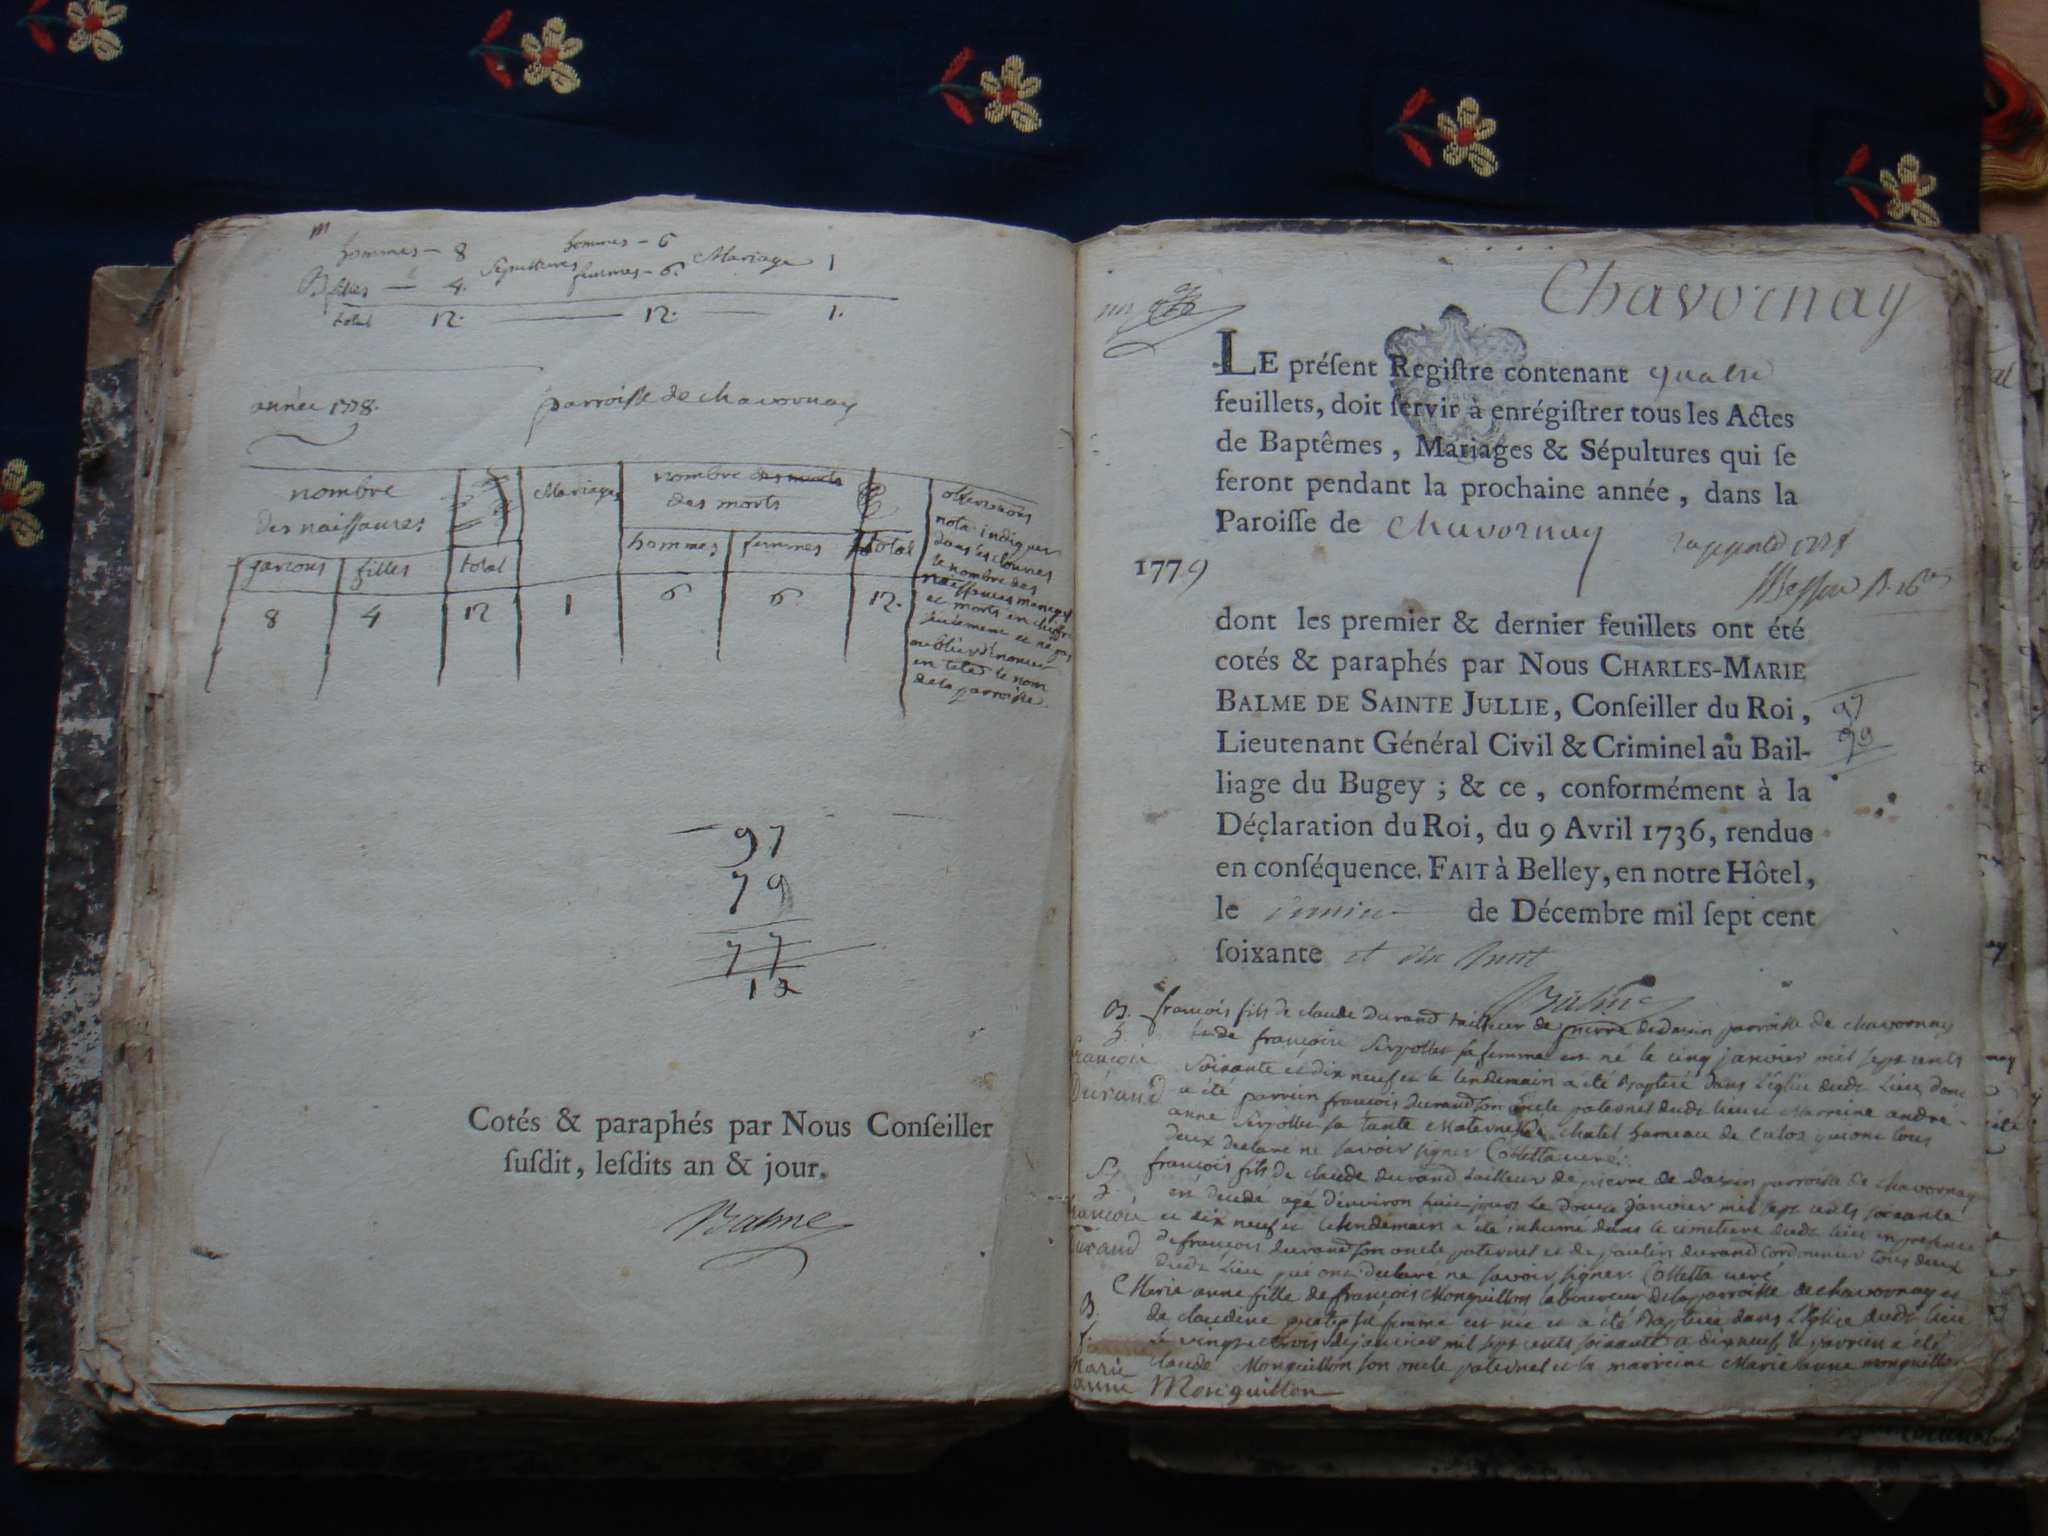 hommes — 8 sepultures hommes — 6 Mariage 1
B filles — 4. femmes — 6.
total 12. 12. 1.
année 1778. parroisse de chavornay
nombre des naissances Mariages nombre des morts observations
garcons filles total hommes femmes total
8 4 12 1 6 6 12.
nota. indiquer
dans les colonnes
le nombre des
naissances mariages
et morts en chiffre
seulement et ne pas
oublier d'enoncer
en tete le nom
de la parroisse.
97
79
77
12
Cotés & paraphés par Nous Conſeiller
ſuſdit, leſdits an & jour.
Balme
Chavornay
LE préſent Regiſtre contenant quatre
feuillets, doit ſervir à enrégiſtrer tous les Actes
de Baptêmes, Mariages & Sépultures qui ſe
feront pendant la prochaine année, dans la
Paroiſſe de Chavornay
1779
dont les premier & dernier feuillets ont été
cotés & paraphés par Nous CHARLES-MARIE
BALME DE SAINTE JULLIE, Conſeiller du Roi,
Lieutenant Général Civil & Criminel au Bail-
liage du Bugey ; & ce, conformément à la
Déclaration du Roi, du 9 Avril 1736, rendue
en conſéquence. FAIT à Belley, en notre Hôtel,
le de Décembre mil ſept cent
ſoixante et dix huit
97
79
Balme
B. françois fils de claude Durand tailleur de pierre de dasin parroisse de chavornay
et de françoise Serpollet sa femme est né le cinq janvier mil sept cents
françois soixante et dix neuf et le lendemain a été Baptisé dans l'Eglise dudt Lieu dont
Durand a été parrein françois durand son oncle paternel dudt lieu et Marreine andré-
anne Serpollet sa tante Maternelle chatel hameau de culoz qui ont tous
deux declaré ne savoir signer Colletta curé.
S. françois fils de claude durand tailleur de pierre de dasin parroisse de chavornay
est decedé agé d'environ huit jours Le douze Janvier mil sept cents soixante
françois et dix neuf et le lendemain a été inhumé dans le cimetiere dudt lieu en presence
Durand de françois durand son oncle paternel et de durand cordonnier tous deux
dudt Lieu qui ont declaré ne savoir signer. Colletta curé
B. Marie anne fille de françois Monguillon laboureur de la parroisse de chavornay et
de claudine sa femme est née et a été Baptisée dans L'Eglise dudt lieu
Le vingt et trois de janvier mil sept cents soixante et dix neuf le parrein a été
Marie claude Monguillon son oncle paternel et la marreine Marie anne monguillon
anne Monguillon